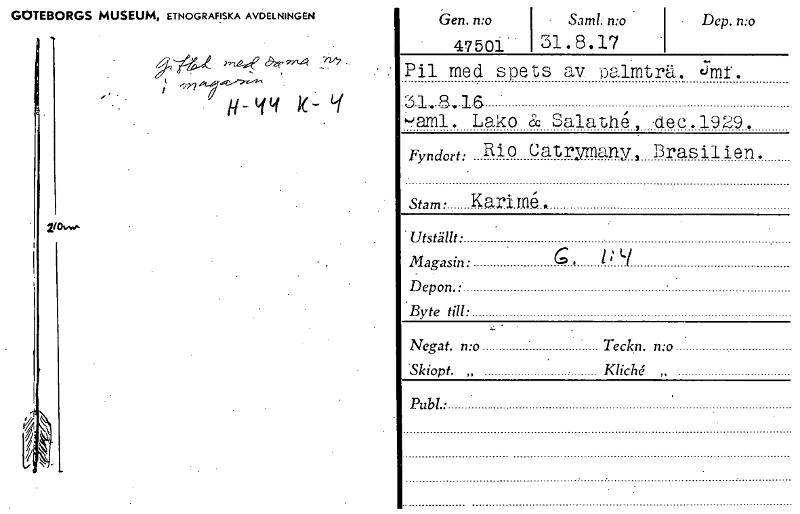 GÖTEBORGS MUSEUM, ETNOGRAFISKA AVDELNINGEN
med samma nr.
i magasin
H-44 K-4
210cm
Gen. n:o Saml. n:o Dep. n:o
47501 31.8.17
Pil med spets av palmträ. Jmf.
31.8.16
Saml. Lako & Salathé, dec.1929.
Fyndort: Rio Catrymany, Brasilien.
Stam: Karimé.
Utställt:
Magasin: G. 1:4
Depon.:
Byte till:
Negat. n:o Teckn. n:o
Skiopt. „ Kliché „
Publ.: